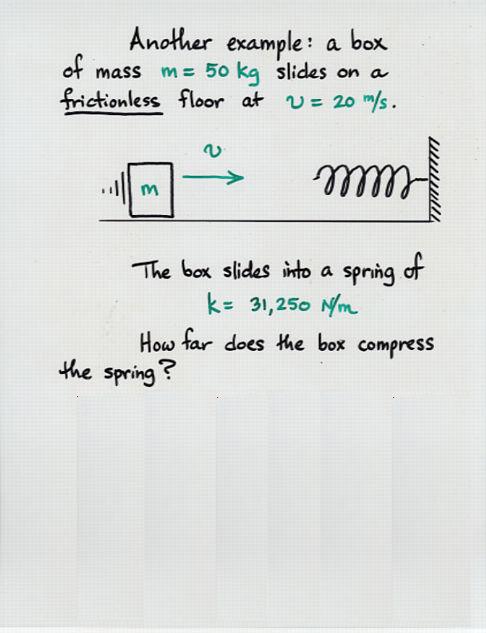 Another example: a box
of mass m = 50 kg slides on a
frictionless floor at v = 20 m/s.
v
m
The box slides into a spring of
k = 31,250 N/m
How far does the box compress
the spring?